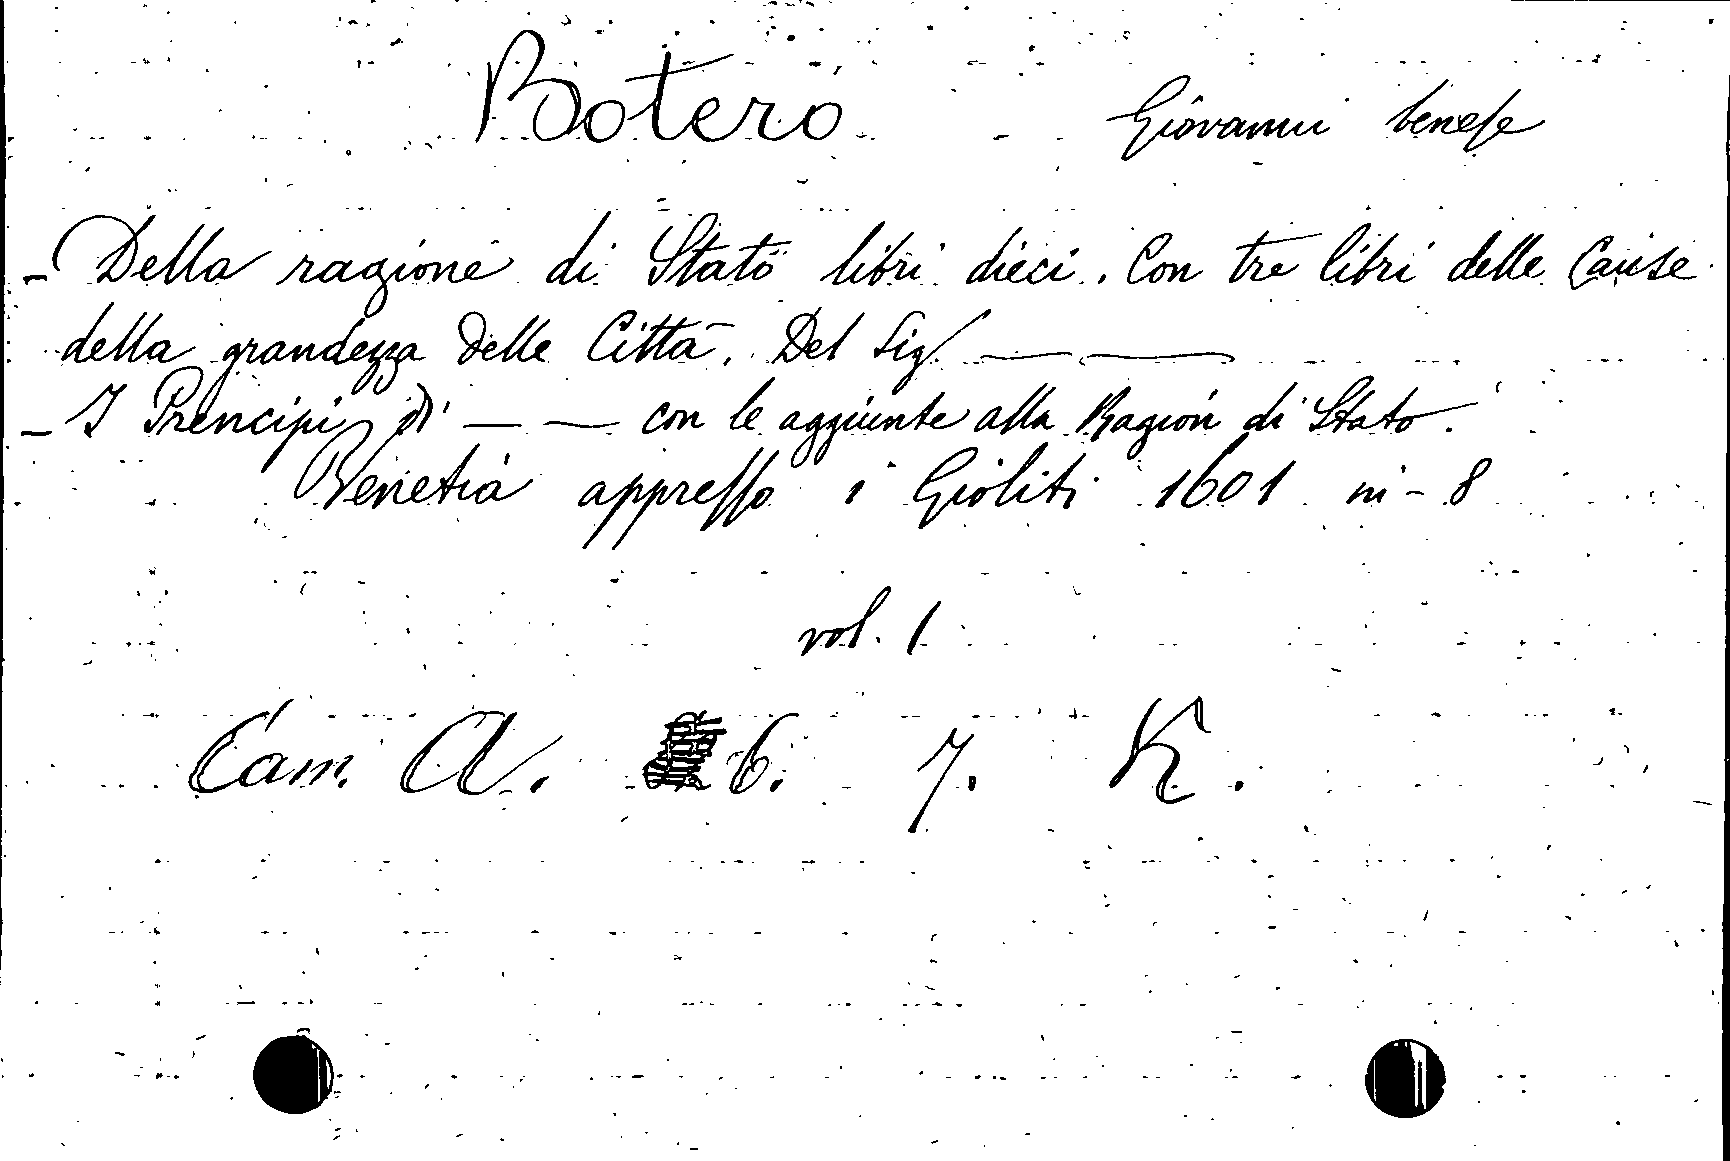 Botero Giovanni benese
- Della ragione di Stato libri dieci. Con tre libri delle Cause
della grandezza delle Città. Del Sig. — —
- I Prencipi di — — con le aggiunte alla Ragion di Stato.
Venetia appresso i Gioliti 1601 in-8
vol. 1
Cam. A. 6. 7. K.